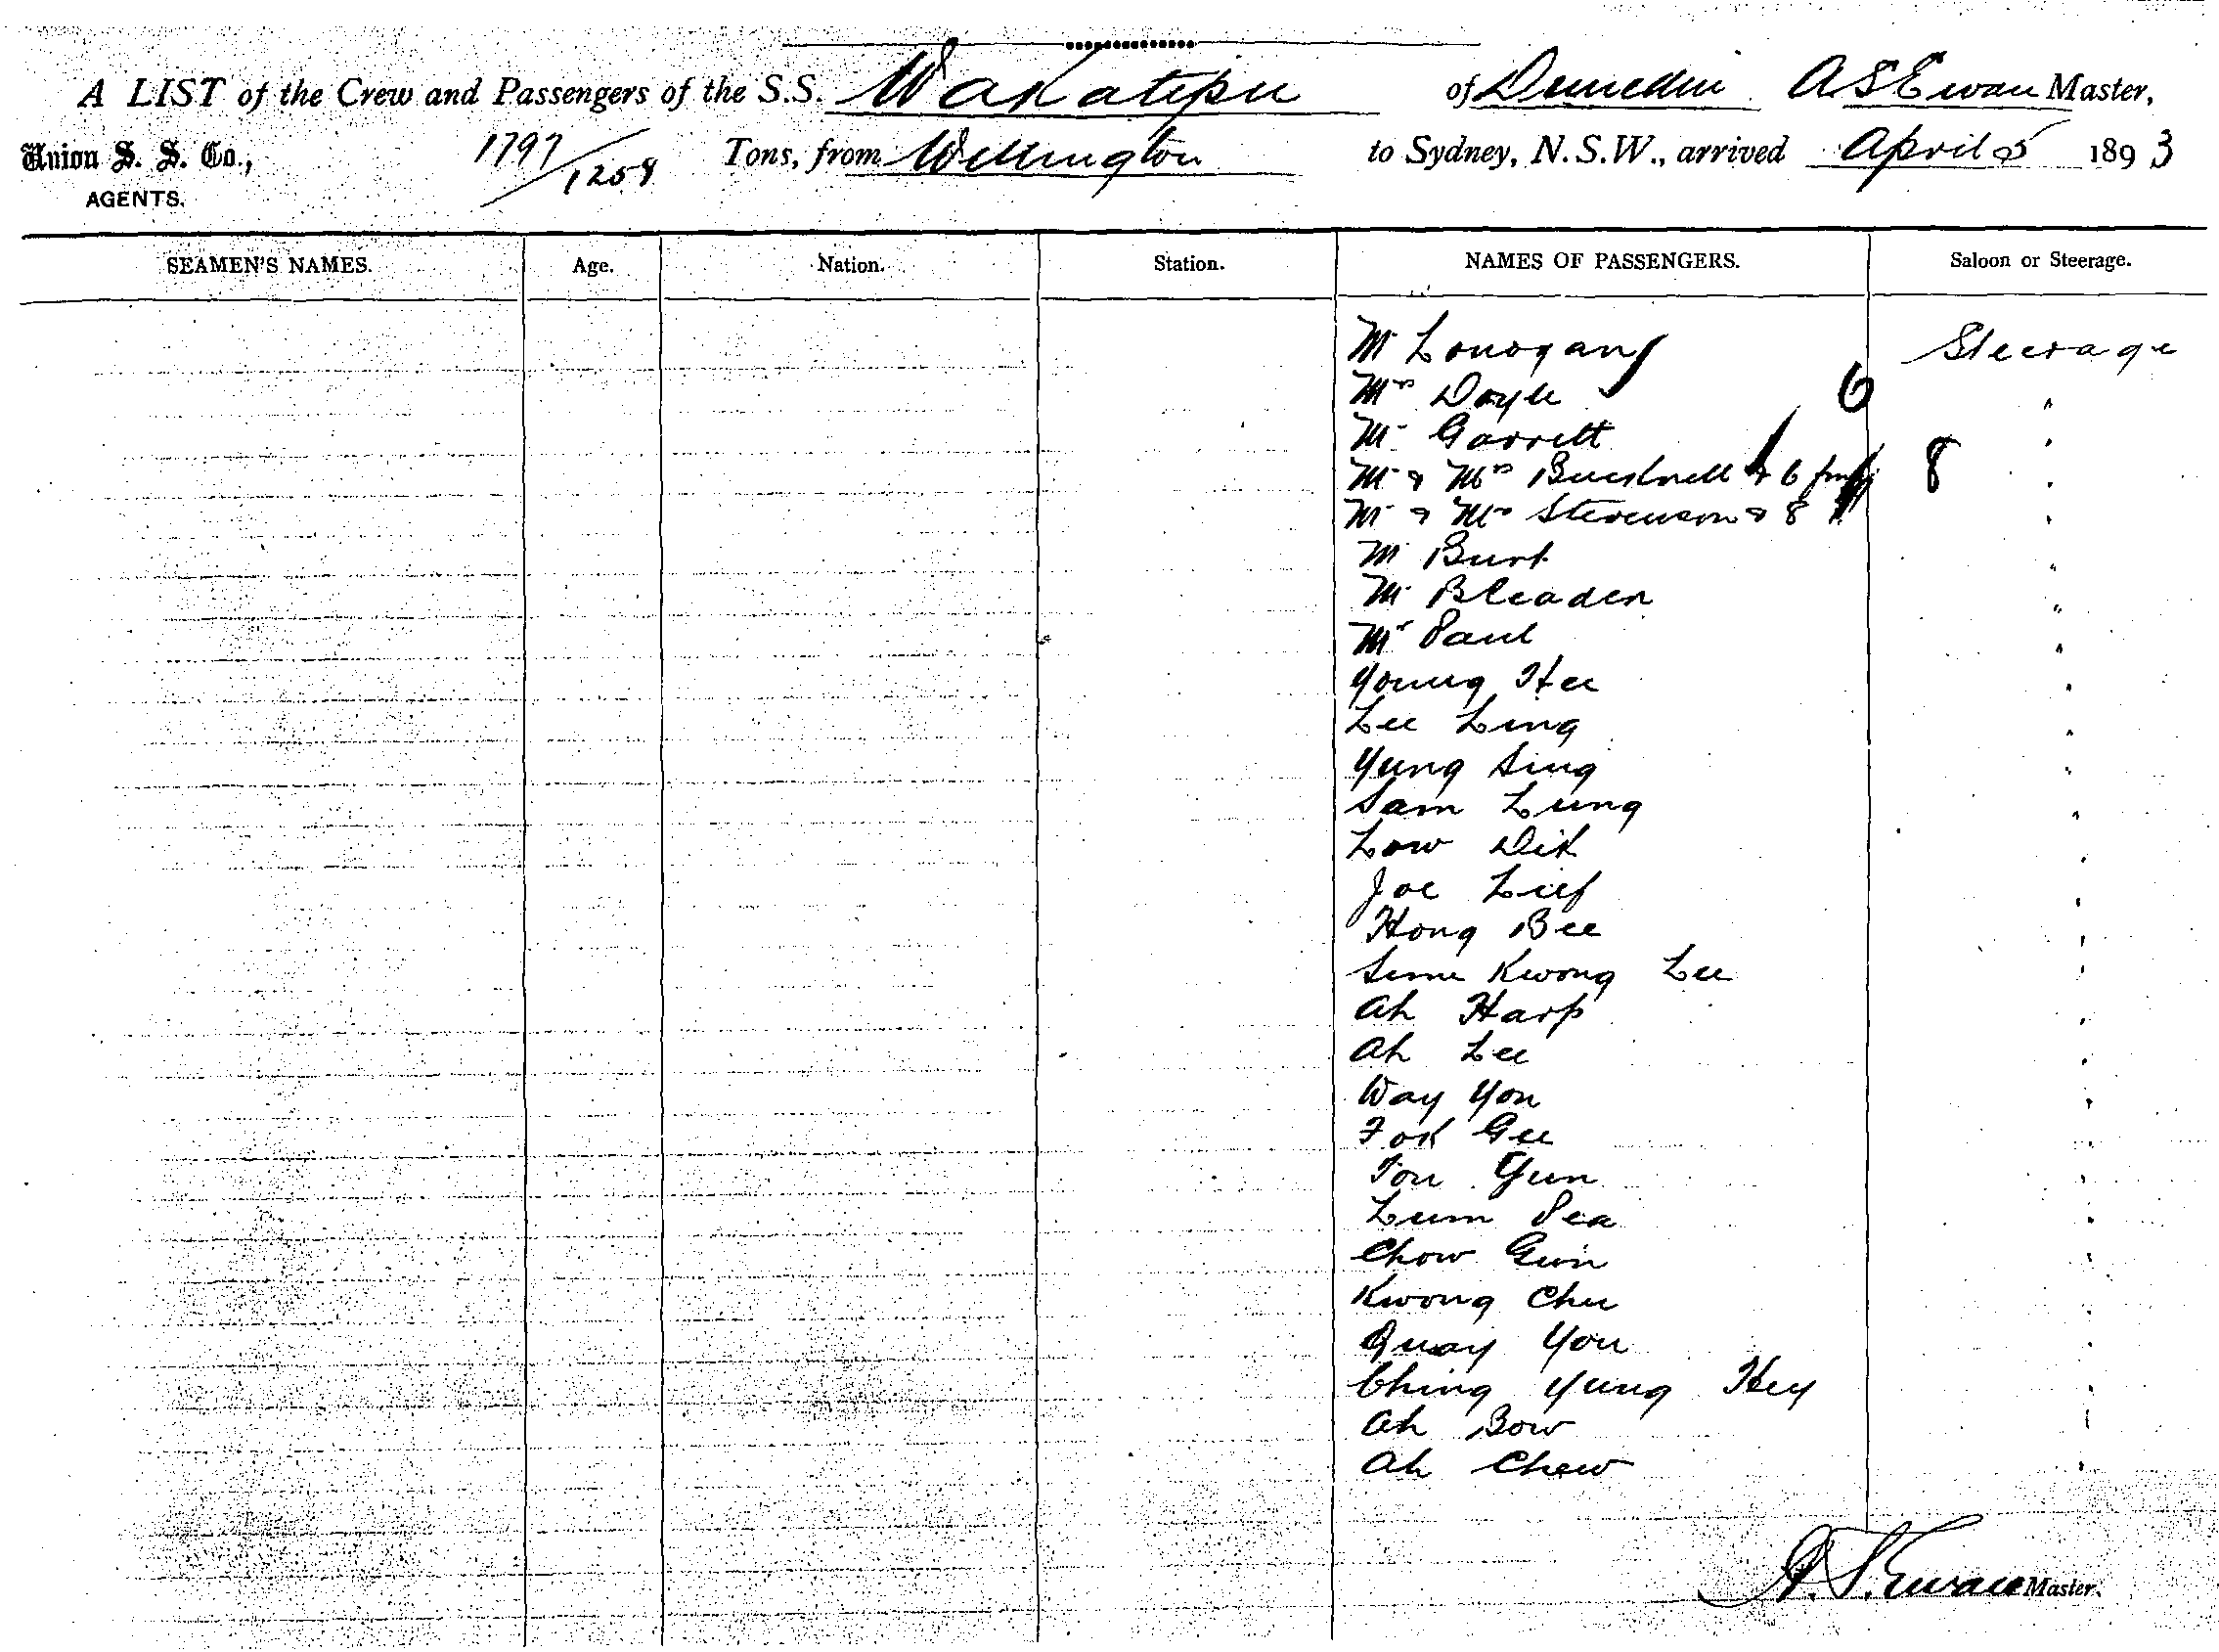 A LIST of the Crew and Passengers of the S.S. Wakatipu of Dunedin A S Ewan Master,
Union S. S. Co., 1797/1258 Tons, from Wellington to Sydney, N.S.W., arrived April 5 1893
AGENTS.
SEAMEN'S NAMES. Age. Nation. Station. NAMES OF PASSENGERS. Saloon or Steerage.
Mr Lonogan Steerage
Mrs Doyle 6 "
Mr Garrett "
Mr & Mrs Bucknell & 6 8 "
Mr & Mrs Stevenson & 8 "
Mr Burt "
Mr Bleaden "
Mr Paul "
Young Hee "
Lee Ling "
Yung Sing "
Sam Lung "
Low Dik "
Joe Lief "
Hong Bee "
Kwong Lee "
Ah Harp "
Ah Lee "
Way Yon "
Fok Gee "
Tou Yun "
Lum Pea "
Chow Gwin "
Kwong Chu "
Quay You "
Ching Yung Hey "
Ah Bow "
Ah Chew "
A. S. Ewan Master.